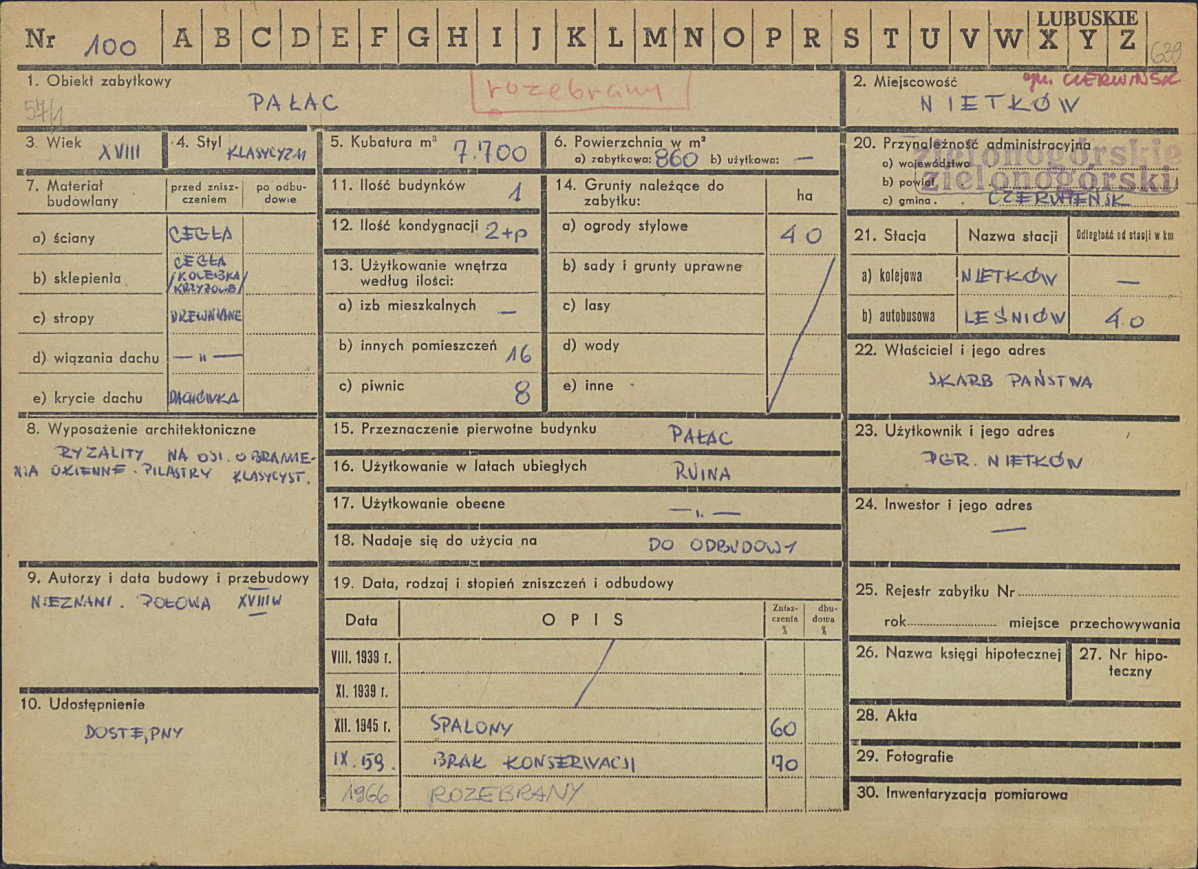 Nr 100 A B C D E F G H I J K L M N O P R S T U V W X Y Z
LUBUSKIE
639
1. Obiekt zabytkowy
57/1
PAŁAC
rozebrany
2. Miejscowość
gm. CZERWIŃSK
NIETKÓW
3. Wiek XVIII
4. Styl KLASYCYZM
5. Kubatura m³ 7.700
6. Powierzchnia w m²
a) zabytkowa: 860 b) użytkowa: —
7. Materiał budowlany
przed znisz-
czeniem
po odbu-
dowie
a) ściany CEGŁA
b) sklepienia CEGŁA
/KOLEBKA/
KRZYŻOWE/
c) stropy DREWNIANE
d) wiązania dachu —"—
e) krycie dachu DACHÓWKA
8. Wyposażenie architektoniczne
RYZALITY NA OSI. OBRAMIE-
NIA OKIENNE. PILASTRY KLASYCYST.
9. Autorzy i data budowy i przebudowy
NIEZNANI. POŁOWA XVIII W
10. Udostępnienie
DOSTĘPNY
11. Ilość budynków 1
12. Ilość kondygnacji 2+p
13. Użytkowanie wnętrza
według ilości:
a) izb mieszkalnych —
b) innych pomieszczeń 16
c) piwnic 8
14. Grunty należące do
zabytku:
ha
a) ogrody stylowe 40
b) sady i grunty uprawne
c) lasy
d) wody
e) inne
15. Przeznaczenie pierwotne budynku PAŁAC
16. Użytkowanie w latach ubiegłych RUINA
17. Użytkowanie obecne —"—
18. Nadaje się do użycia na DO ODBUDOWY
19. Data, rodzaj i stopień zniszczeń i odbudowy
Data OPIS
Znisz-
czenia
%
dbu-
dowa
%
VIII. 1939 r.
XI. 1939 r.
XII. 1945 r. SPALONY 60
IX. 59. BRAK KONSERWACJI 70
1966 ROZEBRANY
20. Przynależność administracyjna
a) województwo zielonogórskie
b) powiat zielonogórski
c) gmina CZERWIEŃSK
21. Stacja Nazwa stacji Odległość od stacji w km
a) kolejowa NIETKÓW —
b) autobusowa LEŚNIÓW 4.0
22. Właściciel i jego adres
SKARB PAŃSTWA
23. Użytkownik i jego adres
PGR. NIETKÓW
24. Inwestor i jego adres
—
25. Rejestr zabytku Nr
rok miejsce przechowywania
26. Nazwa księgi hipotecznej
27. Nr hipo-
teczny
28. Akta
29. Fotografie
30. Inwentaryzacja pomiarowa